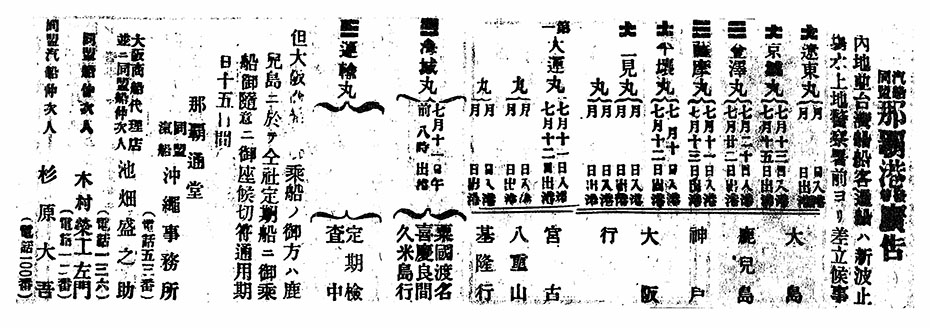 汽船同盟 那覇港出帆廣告
内地並台灣船客通船ハ新波止場水上地警察署前ヨリ差立候事
遼東丸 月 日入港 月 日出港 大島
京城丸 七月十三日入港 七月十五日出港
金澤丸 七月二十日入港 七月廿二日出港 鹿兒島
薩摩丸 七月十一日入港 七月十三日出港 神戸
平壤丸 七月十日入港 七月十二日出港 大阪
一見丸 月 日入港 月 日出港
丸 月 日入港 月 日出港 行
第一大運丸 七月十一日入港 七月十二日出港 宮古
丸 月 日入港 月 日出港 八重山
丸 月 日入港 月 日出港 基隆行
海城丸 七月十一日午前八時出港 粟國渡名喜慶良間久米島行
運輸丸 定期檢査中
但大阪 乘船ノ御方ハ鹿
兒島ニ於テ仝社定期船ニ御乘
船御隨意ニ御座候切符通用期
日十五日間
那覇通堂
同盟汽船 沖繩事務所
(電話五三番)
大阪商船代理店並ニ同盟船仲次人 池畑盛之助
(電話一三六)
同盟船仲次人 木村榮工左門
(電話一二番)
同盟汽船仲次人 杉原大吾
(電話100番)